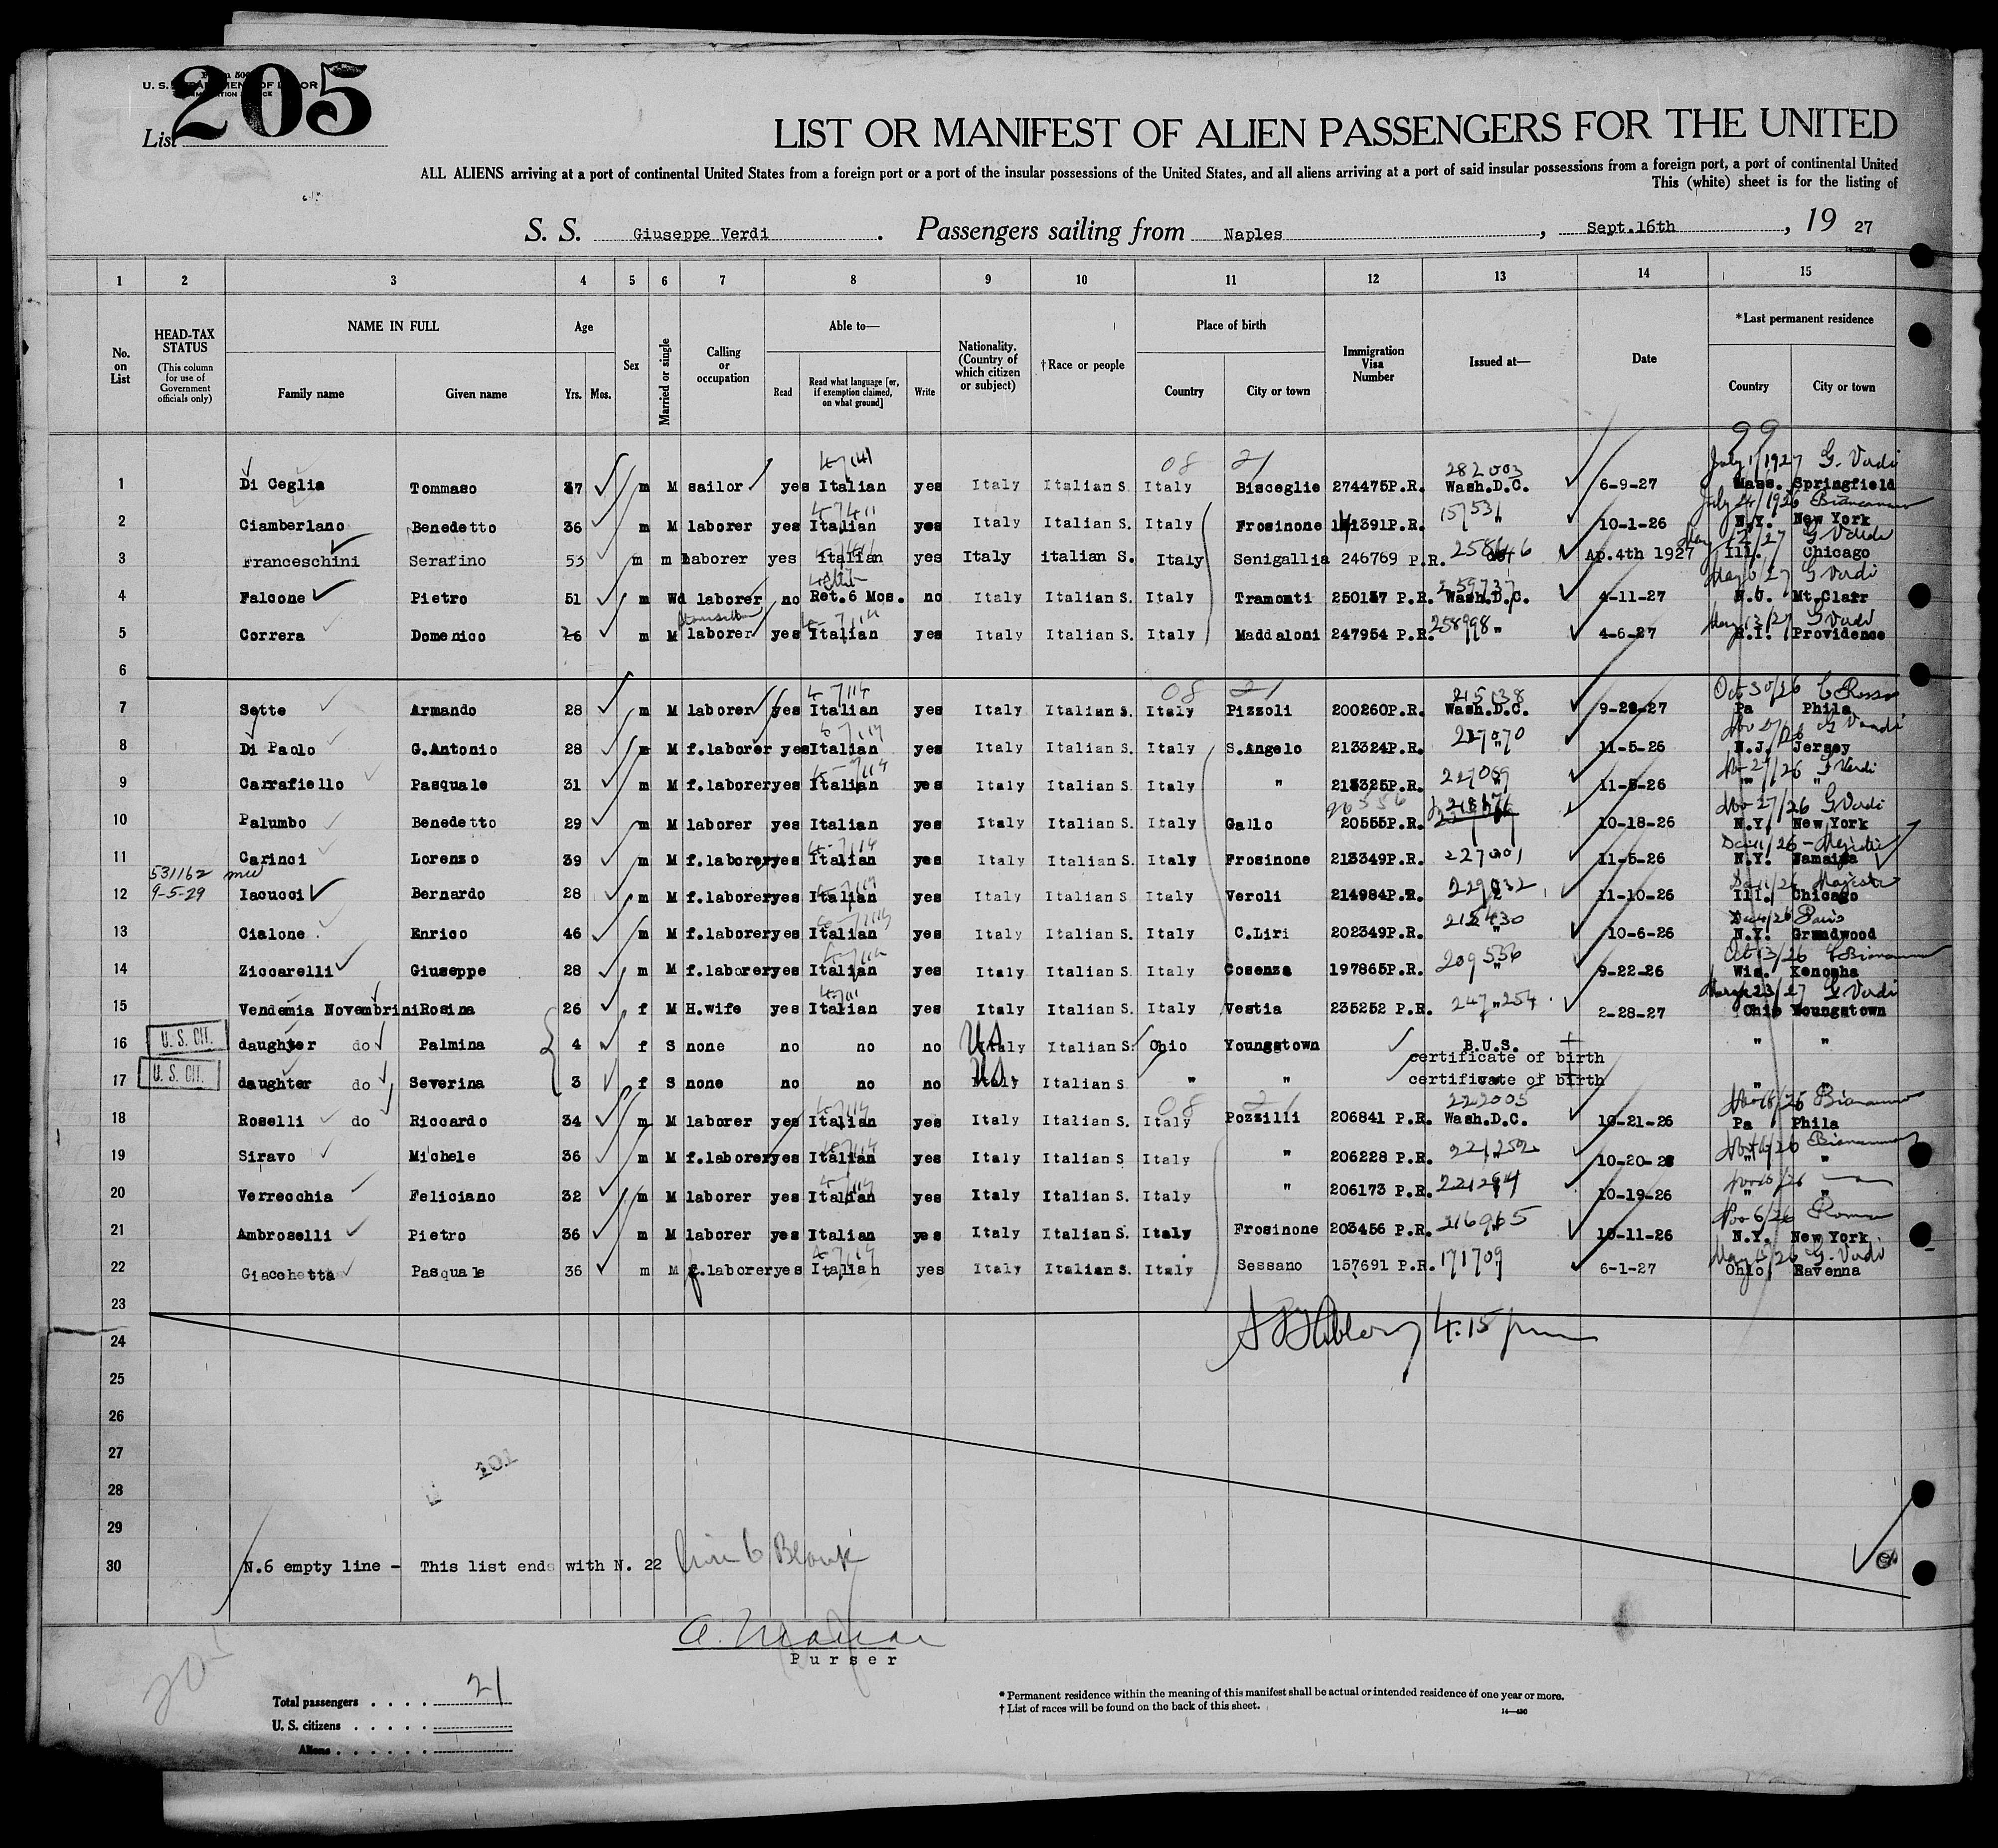 205
Form 500
U. S. DEPARTMENT OF LABOR
List
LIST OR MANIFEST OF ALIEN PASSENGERS FOR THE UNITED
ALL ALIENS arriving at a port of continental United States from a foreign port or a port of the insular possessions of the United States, and all aliens arriving at a port of said insular possessions from a foreign port, a port of continental United
This (white) sheet is for the listing of
S. S. Giuseppe Verdi . Passengers sailing from Naples , Sept.16th , 19 27
1 2 3 4 5 6 7 8 9 10 11 12 13 14 15
No. on List
HEAD-TAX STATUS (This column for use of Government officials only)
NAME IN FULL Family name Given name
Age Yrs. Mos.
Sex
Married or single
Calling or occupation
Able to— Read Read what language [or, if exemption claimed, on what ground] Write
Nationality. (Country of which citizen or subject)
†Race or people
Place of birth Country City or town
Immigration Visa Number
Issued at—
Date
*Last permanent residence Country City or town
99
4-7/14 08 21 282003 July 1/1927 G. Verdi
1 Di Ceglia Tommaso 37 m M sailor yes Italian yes Italy Italian S. Italy Bisceglie 274475P.R. Wash.D.C. 6-9-27 Mass. Springfield
157531 July 24/1926 Biancamano
2 Ciamberlano Benedetto 36 m M laborer yes Italian yes Italy Italian S. Italy Frosinone 141391P.R. " 10-1-26 N.Y. New York
May 12/27 G Verdi
3 Franceschini Serafino 53 m m laborer yes Italian yes Italy italian S. Italy Senigallia 246769 P.R. 258646 Ap.4th 1927 Ill. Chicago
259737 May 6/27 G Verdi
4 Falcone Pietro 51 m Wd laborer no Ret.6 Mos. no Italy Italian S. Italy Tramonti 250157 P.R. Wash.D.C. 4-11-27 N.J. Mt.Clair
258998 May 13/27 G Verdi
5 Correra Domenico 26 m M laborer yes Italian yes Italy Italian S. Italy Maddaloni 247954 P.R. " 4-6-27 R.I. Providence
6
4-7/14 08 21 215138 Oct 30/26 C Rosso
7 Sette Armando 28 m M laborer yes Italian yes Italy Italian S. Italy Pizzoli 200260P.R. Wash.D.C. 9-28-27 Pa Phila
227070 Nov 27/26 G Verdi
8 Di Paolo G.Antonio 28 m M f.laborer yes Italian yes Italy Italian S. Italy S.Angelo 213324P.R. " 11-5-26 N.J. Jersey
227069 Nov 27/26 G Verdi
9 Carrafiello Pasquale 31 m M f.laborer yes Italian yes Italy Italian S. Italy " 213325P.R. " 11-5-26 " "
20556 Nov 27/26 G Verdi
10 Palumbo Benedetto 29 m M laborer yes Italian yes Italy Italian S. Italy Gallo 20555P.R. 10-18-26 N.Y. New York
4-7/14 227001 Dec 11/26
11 Carinci Lorenzo 39 m M f.laborer yes Italian yes Italy Italian S. Italy Frosinone 213349P.R. 11-5-26 N.Y. Jamaica
531162
9-5-29
229032 Dec 11/26 Majestic
12 Iacucci Bernardo 28 m M f.laborer yes Italian yes Italy Italian S. Italy Veroli 214984P.R. " 11-10-26 Ill. Chicago
215430 Dec 4/26 Paris
13 Cialone Enrico 46 m M f.laborer yes Italian yes Italy Italian S. Italy C.Liri 202349P.R. " 10-6-26 N.Y. Grundwood
209536 Oct 13/26 C Biancamano
14 Ziccarelli Giuseppe 28 m M f.laborer yes Italian yes Italy Italian S. Italy Cosenza 197865P.R. " 9-22-26 Wis. Kenosha
247254 March 23/27 G Verdi
15 Vendemia Novembrini Rosina 26 f M H.wife yes Italian yes Italy Italian S. Italy Vestia 235252 P.R. " 2-28-27 Ohio Youngstown
U. S. CIT. US B.U.S.
16 daughter do Palmina 4 f S none no no no Italy Italian S. Ohio Youngstown certificate of birth " "
U. S. CIT. US
17 daughter do Severina 3 f S none no no no Italy Italian S " " certificate of birth " "
4-7/14 08 21 222005 Nov 16/26 Biancamano
18 Roselli do Riccardo 34 m M laborer yes Italian yes Italy Italian S. Italy Pozzilli 206841 P.R. Wash.D.C. 10-21-26 Pa Phila
221252 Nov 16/26 Biancamano
19 Siravo Michele 36 m M f.laborer yes Italian yes Italy Italian S Italy " 206228 P.R. " 10-20-26 " "
221294 Nov 16/26
20 Verrecchia Feliciano 32 m M laborer yes Italian yes Italy Italian S. Italy " 206173 P.R. " 10-19-26 " "
216965 Nov 6/26 Roma
21 Ambroselli Pietro 36 m M laborer yes Italian yes Italy Italian S. Italy Frosinone 203456 P.R. " 10-11-26 N.Y. New York
4-7/14 171709 May 15/26 G. Verdi
22 Giacchetta Pasquale 36 m M f.laborer yes Italian yes Italy Italian S. Italy Sessano 157691 P.R. " 6-1-27 Ohio Ravenna
23
24 4.15 pm
25
26
27
101
28
29
30 N.6 empty line - This list ends with N. 22 Line 6 Blank
Purser
205
Total passengers . . . . 21
U. S. citizens . . . . .
Aliens . . . . . .
* Permanent residence within the meaning of this manifest shall be actual or intended residence of one year or more.
† List of races will be found on the back of this sheet.
14—430